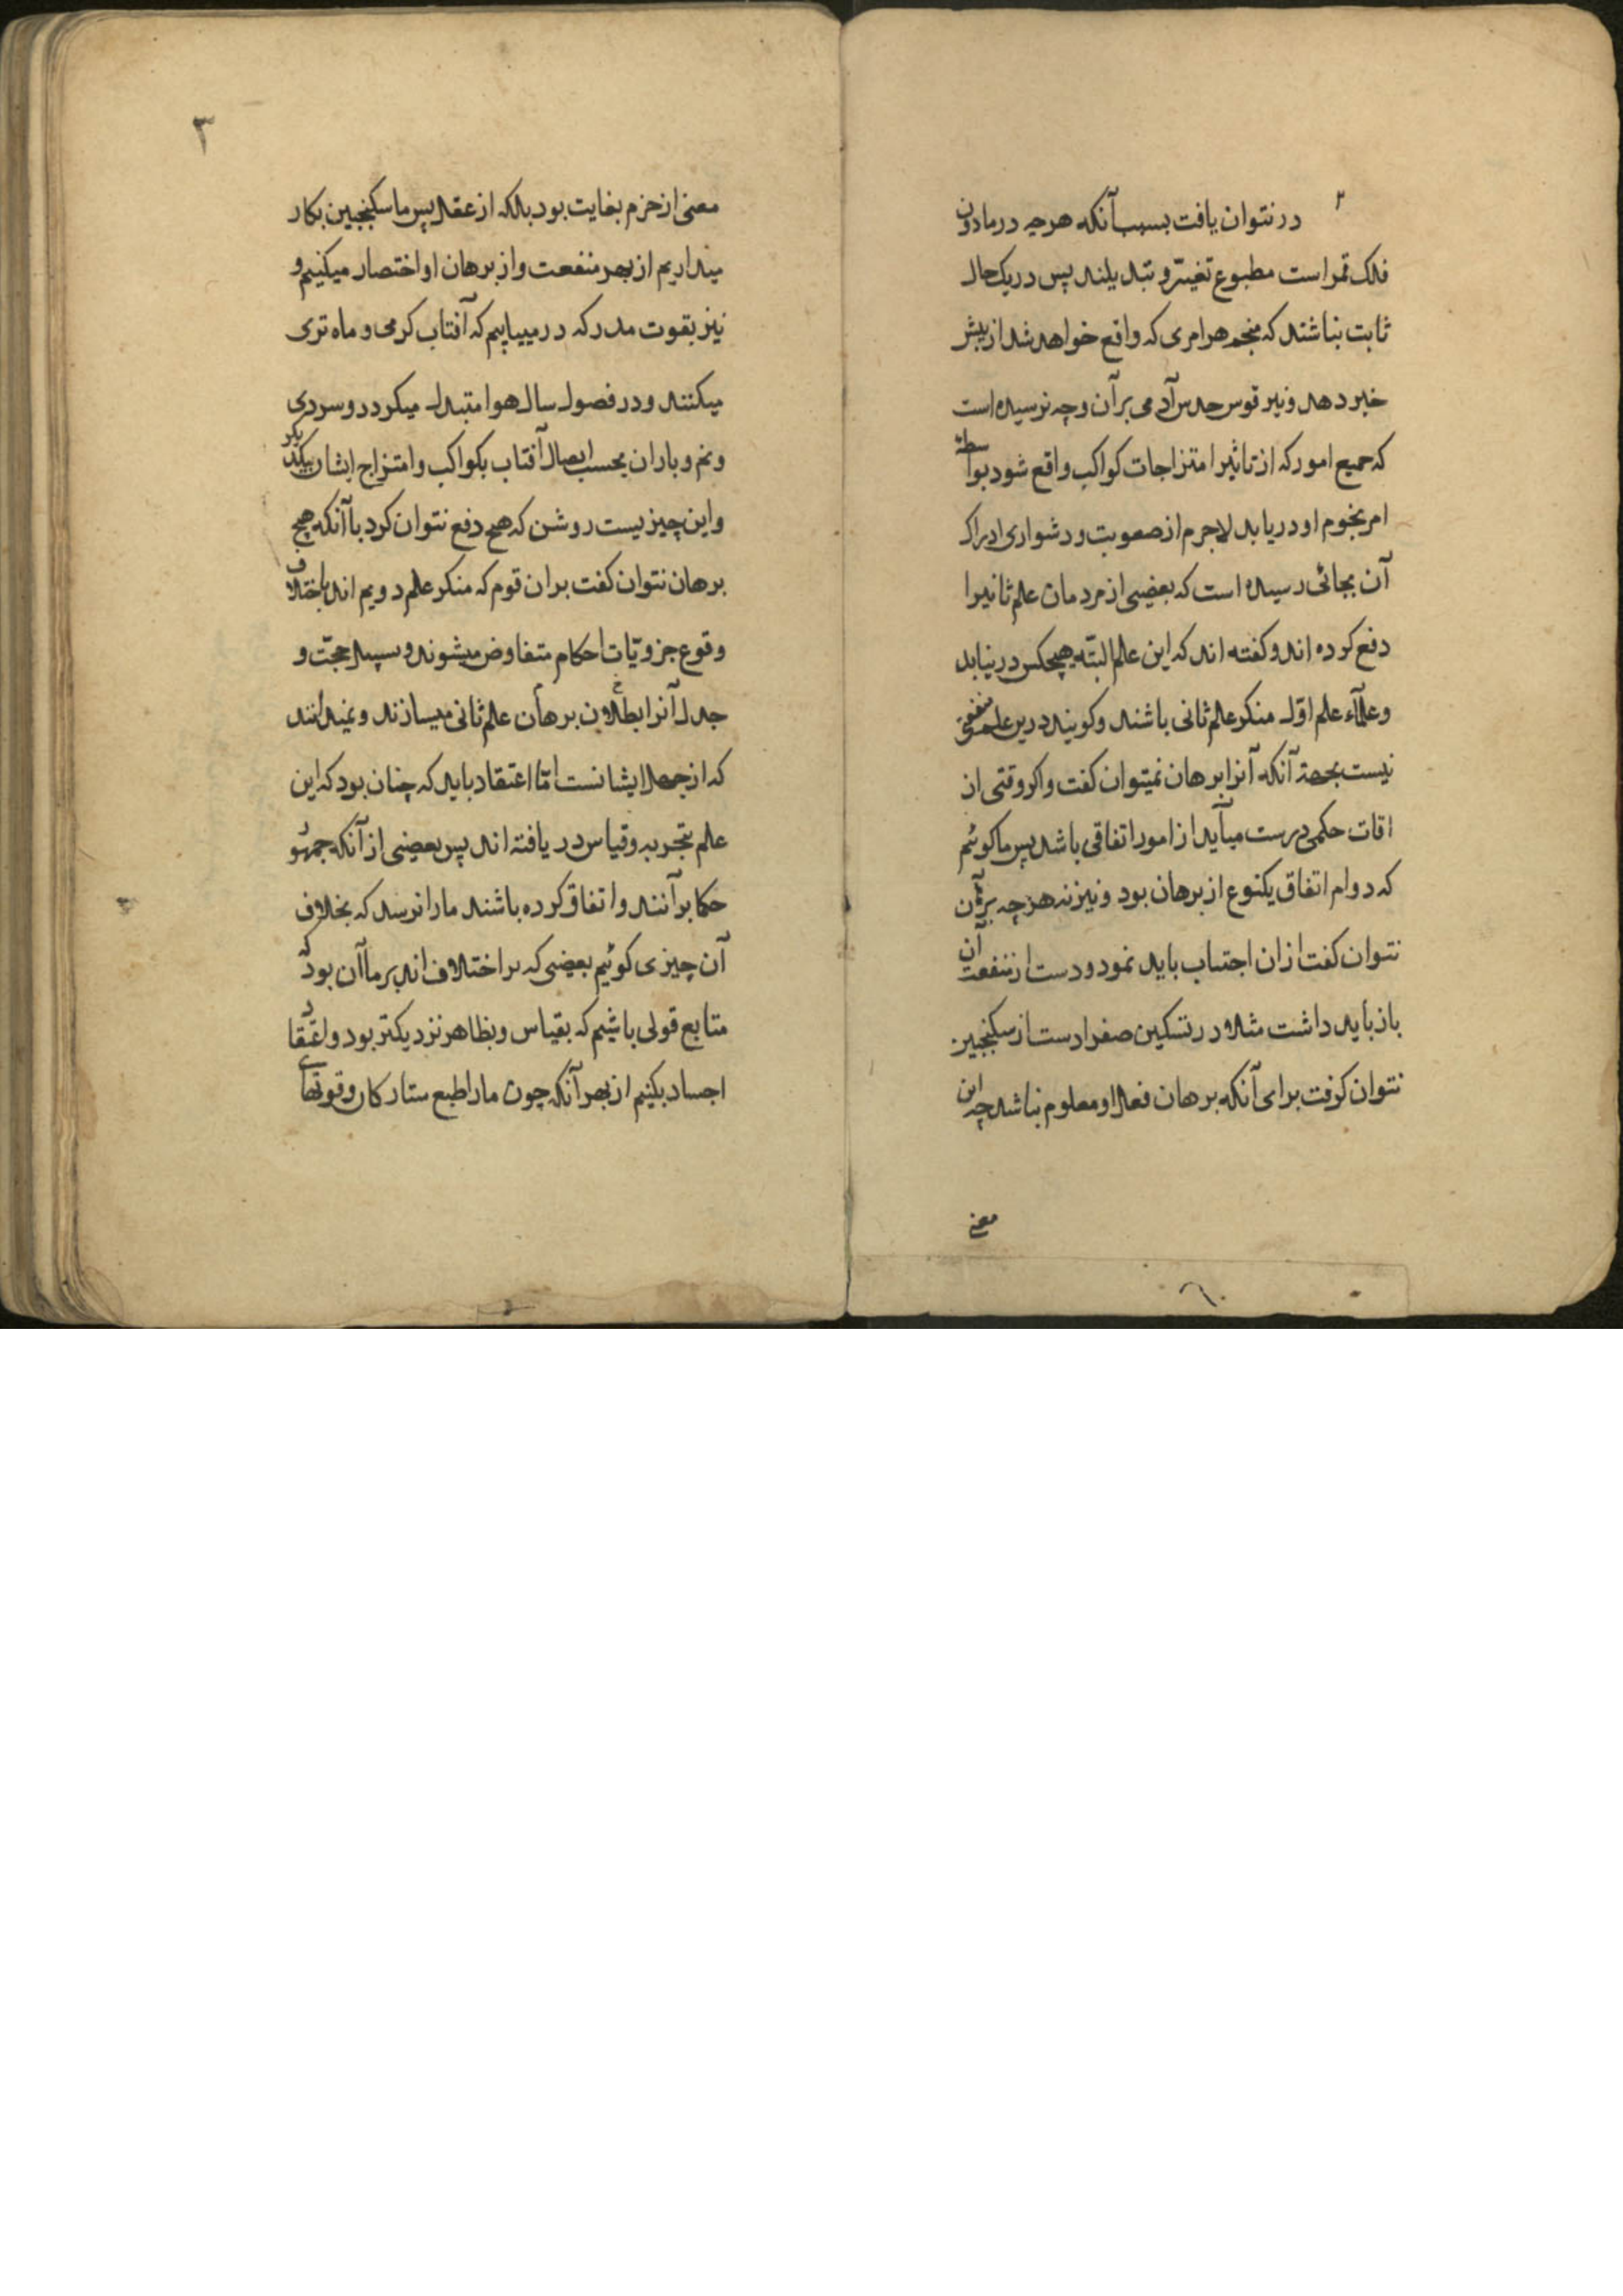 ۲
در نتوان یافت بسبب آنکه هرچه در مادون
فلک قمر است مطبوع تغیّر و تبدیلند پس در یک حال
ثابت نباشند که منجم هر امری که واقع خواهد شد از پیش
خبر دهد و تیر قوس حدس آدمی بر آن وجه نرسیده است
که جمیع امور که از تاثیر امتزاجات کواکب واقع شود بواسطه
امر نجوم او دریابد لاجرم از صعوبت و دشواری ادراک
آن بجائی رسیده است که بعضی از مردمان علم ثانیرا
دفع کرده اند و کفته اند که این علم البتّه هیچکس درنیابد
و علمآء علم اوّل منکر علم ثانی باشند و کویند درین علم منفعتی
نیست بجهة آنکه آنرا برهان نمیتوان کفت و اکر وقتی از
اقات حکمی درست میآید از امور اتفاقی باشد پس ما کوئیم
که دوام اتفاق یکنوع از برهان بود و نیز نه هرچه برهان
نتوان کفت از ان اجتناب باید نمود و دست از منفعت آن
باز باید داشت مثلا در تسکین صفرا دست از سکنجبین
نتوان کرفت برای آنکه برهان فعل او معلوم نباشد چه این
معنی
۳
معنی از حزم بغایت بود بلکه از عقل پس ما سکنجبین بکار
میداریم از بهر منفعت و از برهان او اختصار میکنیم و
نیز بقوت مدرکه در مییابیم که آفتاب کرمی و ماه تری
میکنند و در فصول سال هوا متبدل میکردد و سردی
و نم و باران بحسب اتصال آفتاب بکواکب و امتزاج ایشان بیکدیکر
و این چیزیست روشن که هیچ دفع نتوان کرد با آنکه هیچ
برهان نتوان کفت بران قوم که منکر علم دویم اند باختلاف
وقوع جزویّات احکام متفاوض میشوند و سبیل حجّت و
جدل آنرا بطلان برهان علم ثانی میسازند و نمیدانند
که از جهل ایشانست امّا اعتقاد باید که چنان بود که این
علم بتجربه و قیاس دریافته اند پس بعضی از آنکه جمهور
حکما بر آنند و اتفاق کرده باشند ما را نرسد که بخلاف
آن چیزی کوئیم بعضی که بر اختلاف اند بر ما آن بود که
متابع قولی باشیم که بقیاس و بظاهر نزدیکتر بود و اعتقاد
اجساد بکنیم از بهر آنکه چون ما را طبع ستارکان و قوتهای